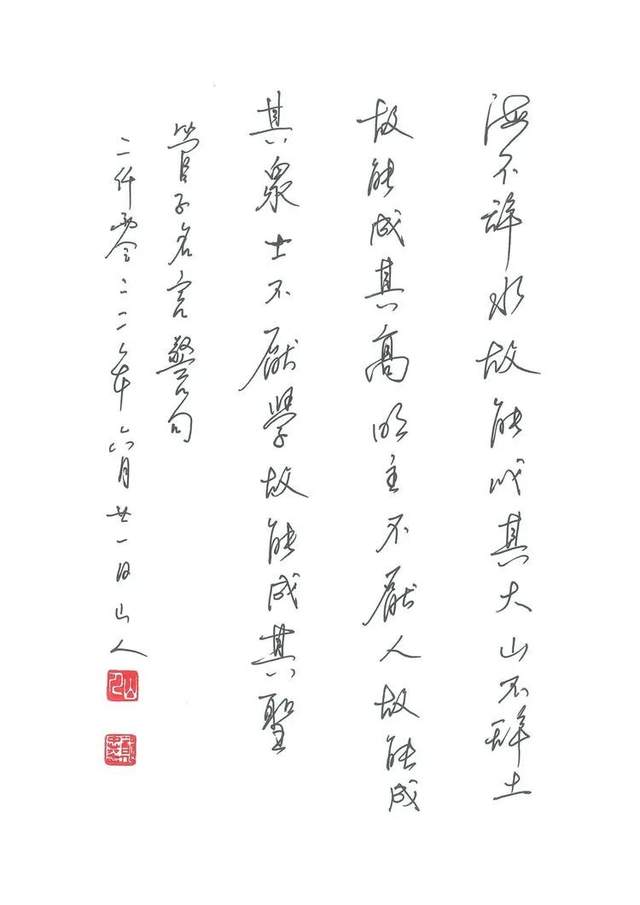 海不辭水故能成其大山不辭土
故能成其高明主不厭人故能成
其衆士不厭學故能成其聖
管子名言警句
二仟零二二年六月廿一日山人
山人